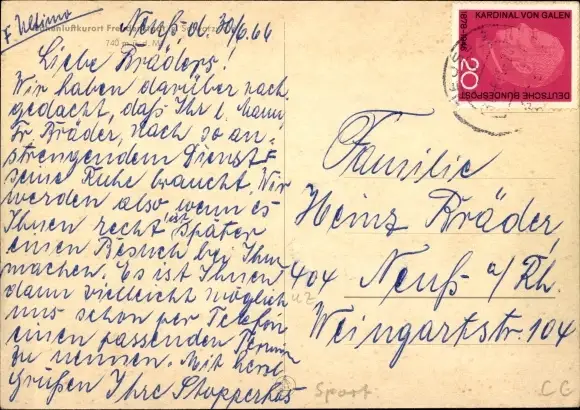 F Ultimo
Höhenluftkurort Freudenstadt im Schwarzwald
740 m ü. d. M.
Neuß, d. 30/6. 66
Liebe Bräders!
Wir haben darüber nach
gedacht, daß Ihr l. Mann,
Hr Bräder, nach so an-
strengendem Dienst
seine Ruhe braucht. Wir
werden also wenn es
Ihnen recht ist später
einen Besuch bei Ihnen
machen. Es ist Ihnen
dann vielleicht möglich
uns schon per Telefon
einen passenden Termin
zu nennen. Mit herzl
Grüßen Ihre Stopperhas
KARDINAL VON GALEN
1878-1946
20
DEUTSCHE BUNDESPOST
Familie
Heinz Bräder,
404 Neuß a/Rh.
Weingartstr. 104
Sport
CC